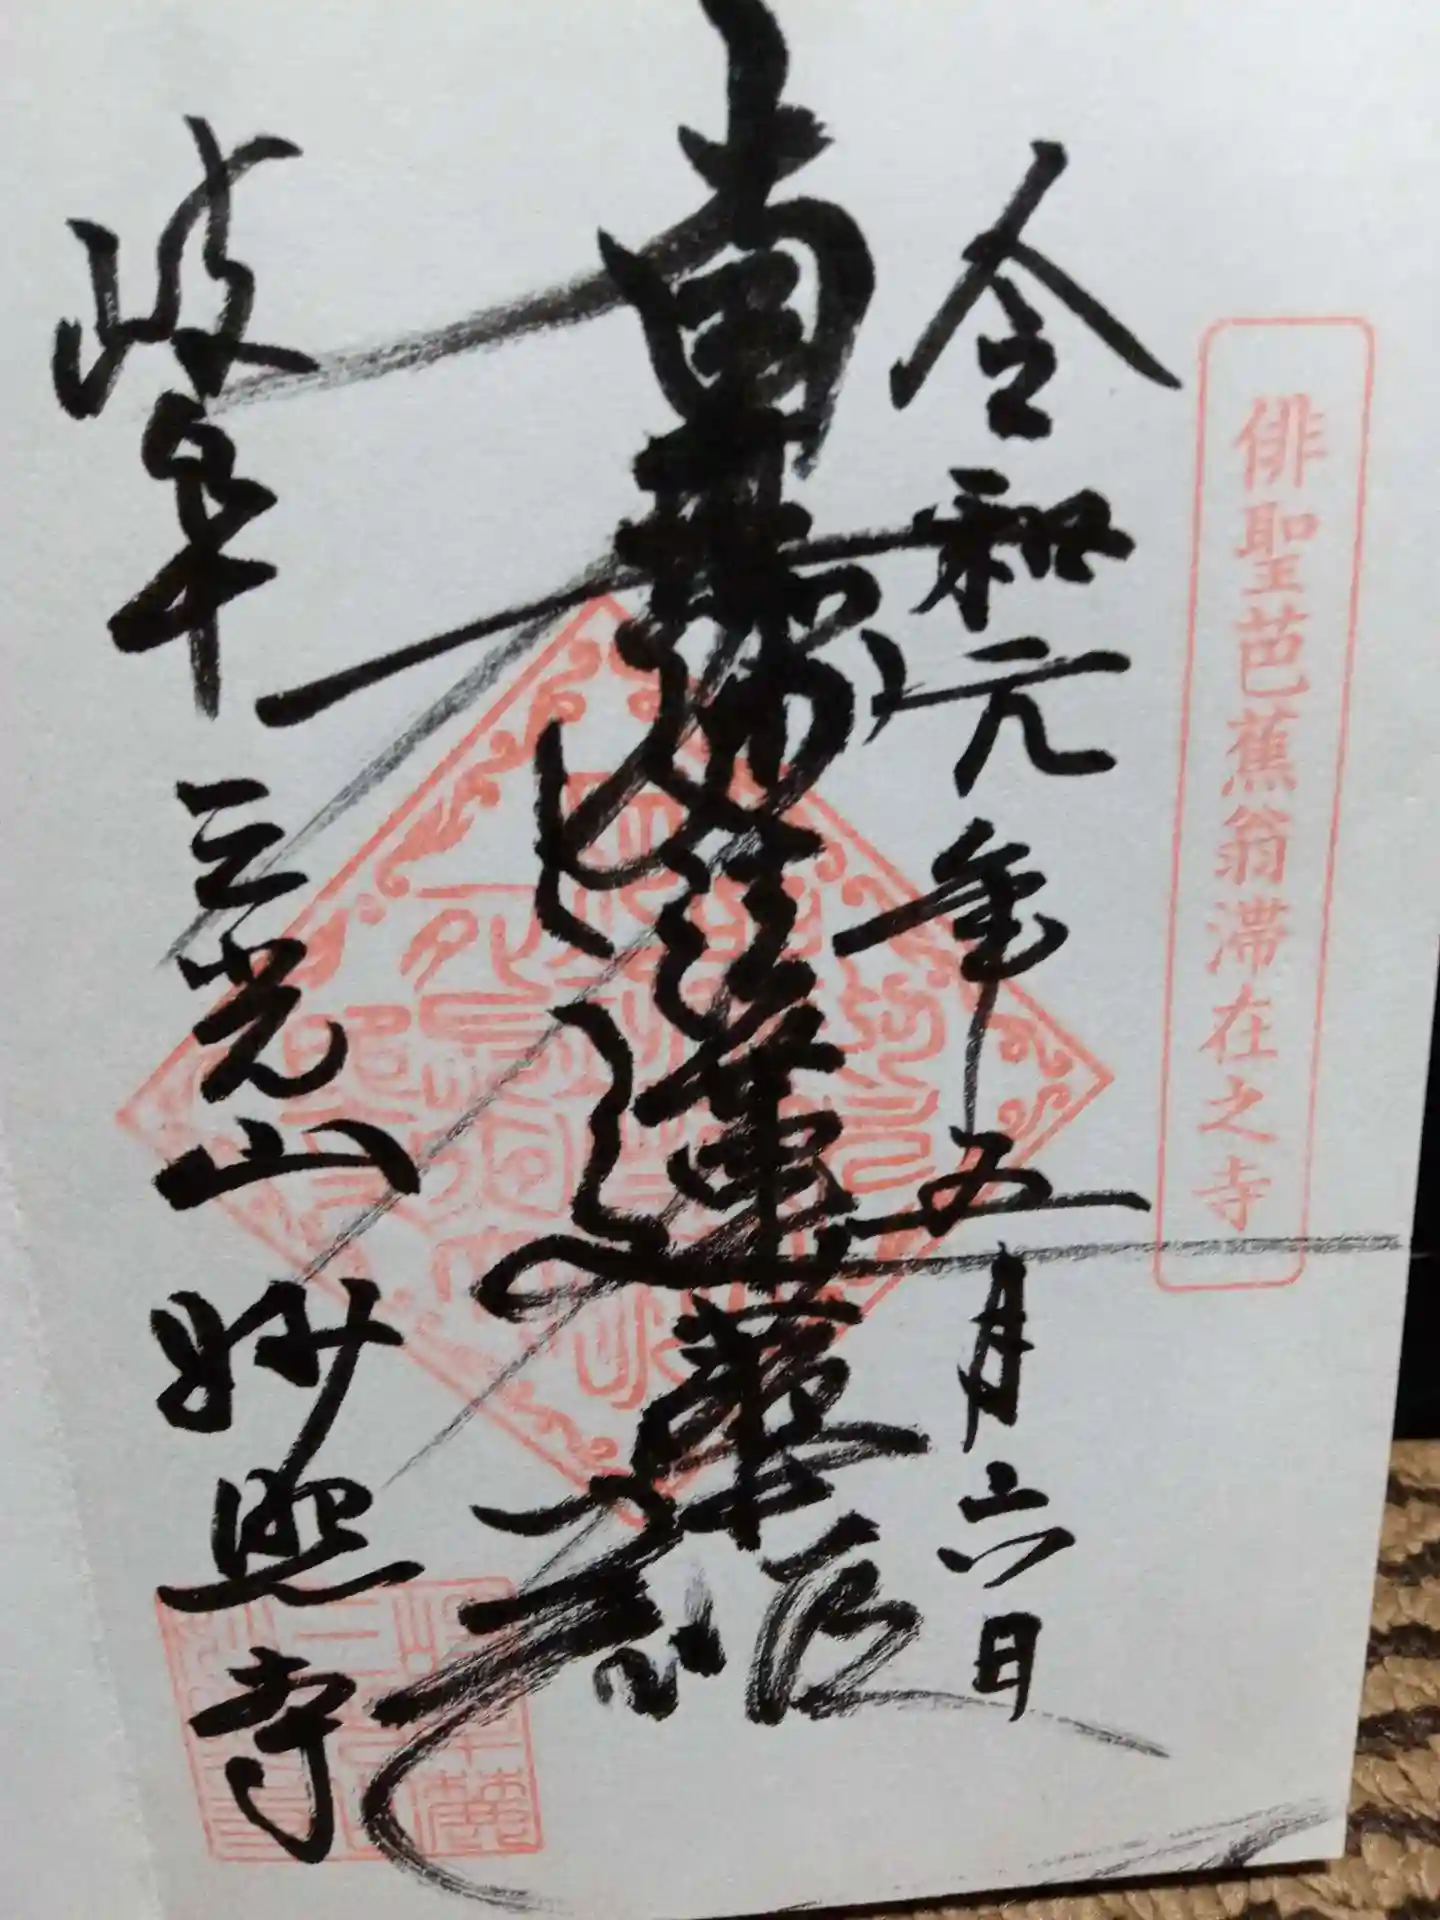 俳聖芭蕉翁滞在之寺
令和元年五月六日
南無妙法蓮華経
岐阜 三光山 妙照寺